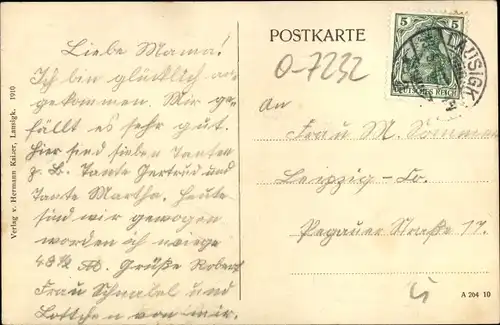 Liebe Mama!
Ich bin glücklich an-
gekommen. Mir ge-
fällt es sehr gut.
Hier sind sieben Tanten
z. B. Tante Gertrud und
Tante Martha. Heute
sind wir gewogen
worden ich wiege
48 ½ Grüße Robert
Frau Schnabel und
Lottchen von mir.
Verlag v. Hermann Kaiser, Lausigk. 1910
POSTKARTE
5 5
DEUTSCHES REICH
LAUSIGK
0-7232
An
Frau M. Sommer
Leipzig - Co.
Pegauer Straße 17.
A 204 10